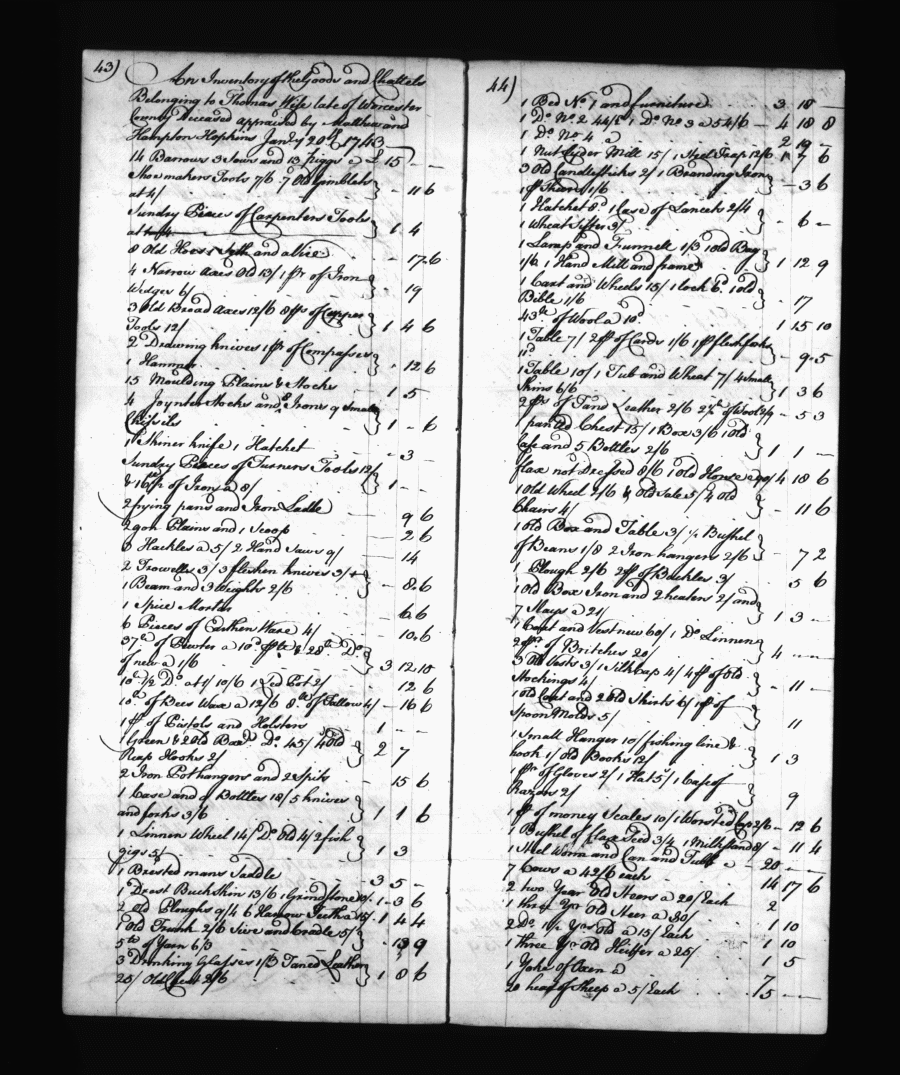 43)
An Inventory of the Goods and Chattels
Belonging to Thomas Wise late of Worcester
County Deceased appraised by Matthew and
Hampton Hopkins Jan:ry 20th 1743
14 Barrows 3 Sows and 13 piggs a £ 15 - -
Shoemakers Tools 7/6 7 Old Gimblets
at 4/ } - 11 6
Sundry Pieces of Carpenters Tools
at } 1 4
8 Old Hoes 1 Syth and a Vice - 17 6
4 Narrow Axes Old 13/ 1 pr of Iron
Wedges 6/ } - 19
3 Old Broad Axes 12/6 8 ps of Cooper
Tools 12/ } 1 4 6
2 Drawing knives 1 pr of Compasses
1 Hammer } - 12 6
15 Moulding Plains & Stocks 1 5
4 Joynter Stocks and 8 Irons 9 Small
Chissils } 1 - 6
1 Skiner knife 1 Hatchet - 3 -
Sundry Pieces of Turners Tools 12/
& 16 of Iron a 8/ } 1 - -
2 frying pans and Iron Ladle - 9 6
2 gon Plains and 1 Scoop - 2 6
6 Hackles a 5/ 2 Hand Saws 9/ - 14
2 Trowells 3/ 3 flesken knives 3/
1 Beam and 3 Weights 2/6 } - 8 6
1 Spice Morter - 6 6
6 Pieces of Earthen Ware 4/ - 10 6
37 lb of Pewter a 10d & 28 lb Do
of new a 1/6 } 3 12 10
10 lb 1/2 Do at 1/ 10/6 1 Led Pot 2/ 12 6
10 lb of Bees Wax a 12/6 8 lb of Tallow 4/ - 16 6
1 pr of Pistols and Holsters 1 -
1 Green & 2 Old Do 45/ 4 Old
Reap Hooks 2/ } 2 7
2 Iron Pothangers and 2 Spits 15 6
1 Case and 9 Bottles 18/ 5 knives
and forks 3/6 } 1 1 6
1 Linnen Wheel 14/ Do Old 4/ 2 fish
gigs 5/ } 1 3
1 Brested mans Saddle - 3 5 -
1 Drest Buck Skin 13/6 1 Grindstone 10/ 1 3 6
2 Old Ploughs 9/4 6 Harrow Teeth a 15/ 1 4 4
1 Old Trunk 2/6 Sive and Cradle 5/
5 lb of Yarn 6/3 } 13 9
3 Drinking Glasses 1/3 Taned Leather
25/ Old 2/6 } 1 8 6
44)
1 Bed No 1 and furniture 3 18 -
1 Do No 2 44/2 1 Do No 3 a 54/6 - 4 18 8
1 Do No 4 a 2 19 -
1 Nut Cyder Mill 15/ 1 Steel Trap 12/6 1 7 6
3 Old Candlesticks 2/ 1 Branding Iron
1 pr Shears 1/6 } - 3 6
1 Hatchet 8d 1 Case of Lancets 2/4
1 Wheat Sifter 3/ } - 6 -
1 Lamp and Tunnell 1/3 1 Old Bag
1/6 1 Hand Mill and frame } 1 12 9
1 Cart and Wheels 15/ 1 lock 6d 1 old
Bible 1/6 } - 17
43 lb of Wool a 10d 1 15 10
1 Table 7/ 2 pr of Cards 1/6 1 pr flesh forks
11d } - 9 5
1 Table 10/ 1 Tub and Wheat 7/ 4 Small
Skins 6/6 } 1 3 6
2 ps of Tand Leather 2/6 of Wool 2/9 - 5 3
1 painted Chest 15/ 1 Box 3/6 1 Old
Case and 5 Bottles 2/6 } 1 1 -
flax not Dressed 8/6 1 Old Horse 4 18 6
1 Old Wheel 2/6 & Old Sale 5/ 4 Old
Chairs 4/ } - 11 6
1 Old Box and Table 3/ 1/2 Bushel
of Beans 1/8 2 Iron hangers 2/6 } - 7 2
1 Plough 2/6 2 pr of Buckles 3/ 5 6
1 Old Box Iron and 2 heaters 2/ and
7 Slays a 21/ } 1 3 -
1 Coat and Vest new 60/ 1 Do Linnen
2 pr of Britches 20/ } 4 - -
3 Old Vests 3/ 1 Silk Cap 4/ 4 pr of Old
Stockings 4/ } - 11 -
1 Old Coat and 2 Old Shirts 6/ 1 pr of
Spoon Molds 5/ } 11
1 Small Hanger 10/ fishing line &
hook 1/ Old Books 12/ } 1 3
1 pr of Gloves 2/ 1 Hat 5/ 1 Case of
Razors 2/ } 9
1 pr of money Scales 10/ 1 Worsted Cap 2/6 - 12 6
1 Bushel of Flax Seed 3/4 1 Milk Stand 8/ - 11 4
1 Still Worm and Can and Tubb a - 20 - -
7 Cows a 42/6 each 14 17 6
2 two Year Old Steers a 20/ Each 2
1 three Yr Old Steer a 30/ 1 10
2 Do 1 1/2 Yrs Old a 15/ Each 1 10
1 three Yr Old Heiffer a 25/ 1 5
1 Yoke of Oxen a 7
20 head of Sheep a 5/ Each 5 - -